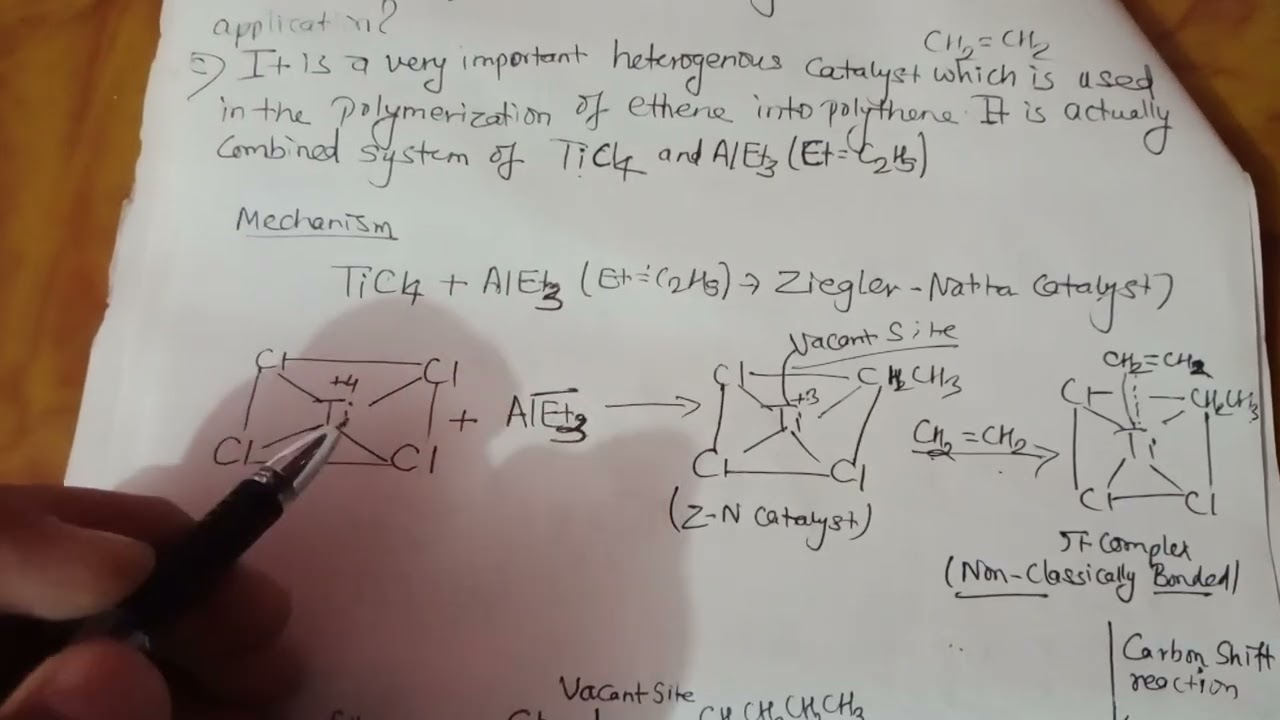 application?
CH2=CH2
⇒ It is a very important heterogenous Catalyst which is used
in the polymerization of ethene into polythene. It is actually
Combined system of TiCl4 and AlEt3 (Et=C2H5)
Mechanism
TiCl4 + AlEt3 (Et=C2H5) → Ziegler-Natta Catalyst)
Vacant Site
Cl Cl +4 Ti Cl Cl + AlEt3 → Cl CH2CH3 +3 Ti Cl Cl CH2=CH2 → CH2=CH2 Cl CH2CH3 Ti Cl Cl
(Z-N Catalyst)
π-Complex
(Non-Classically Bonded)
Carbon Shift
reaction
Vacant Site
CH2CH2CH3